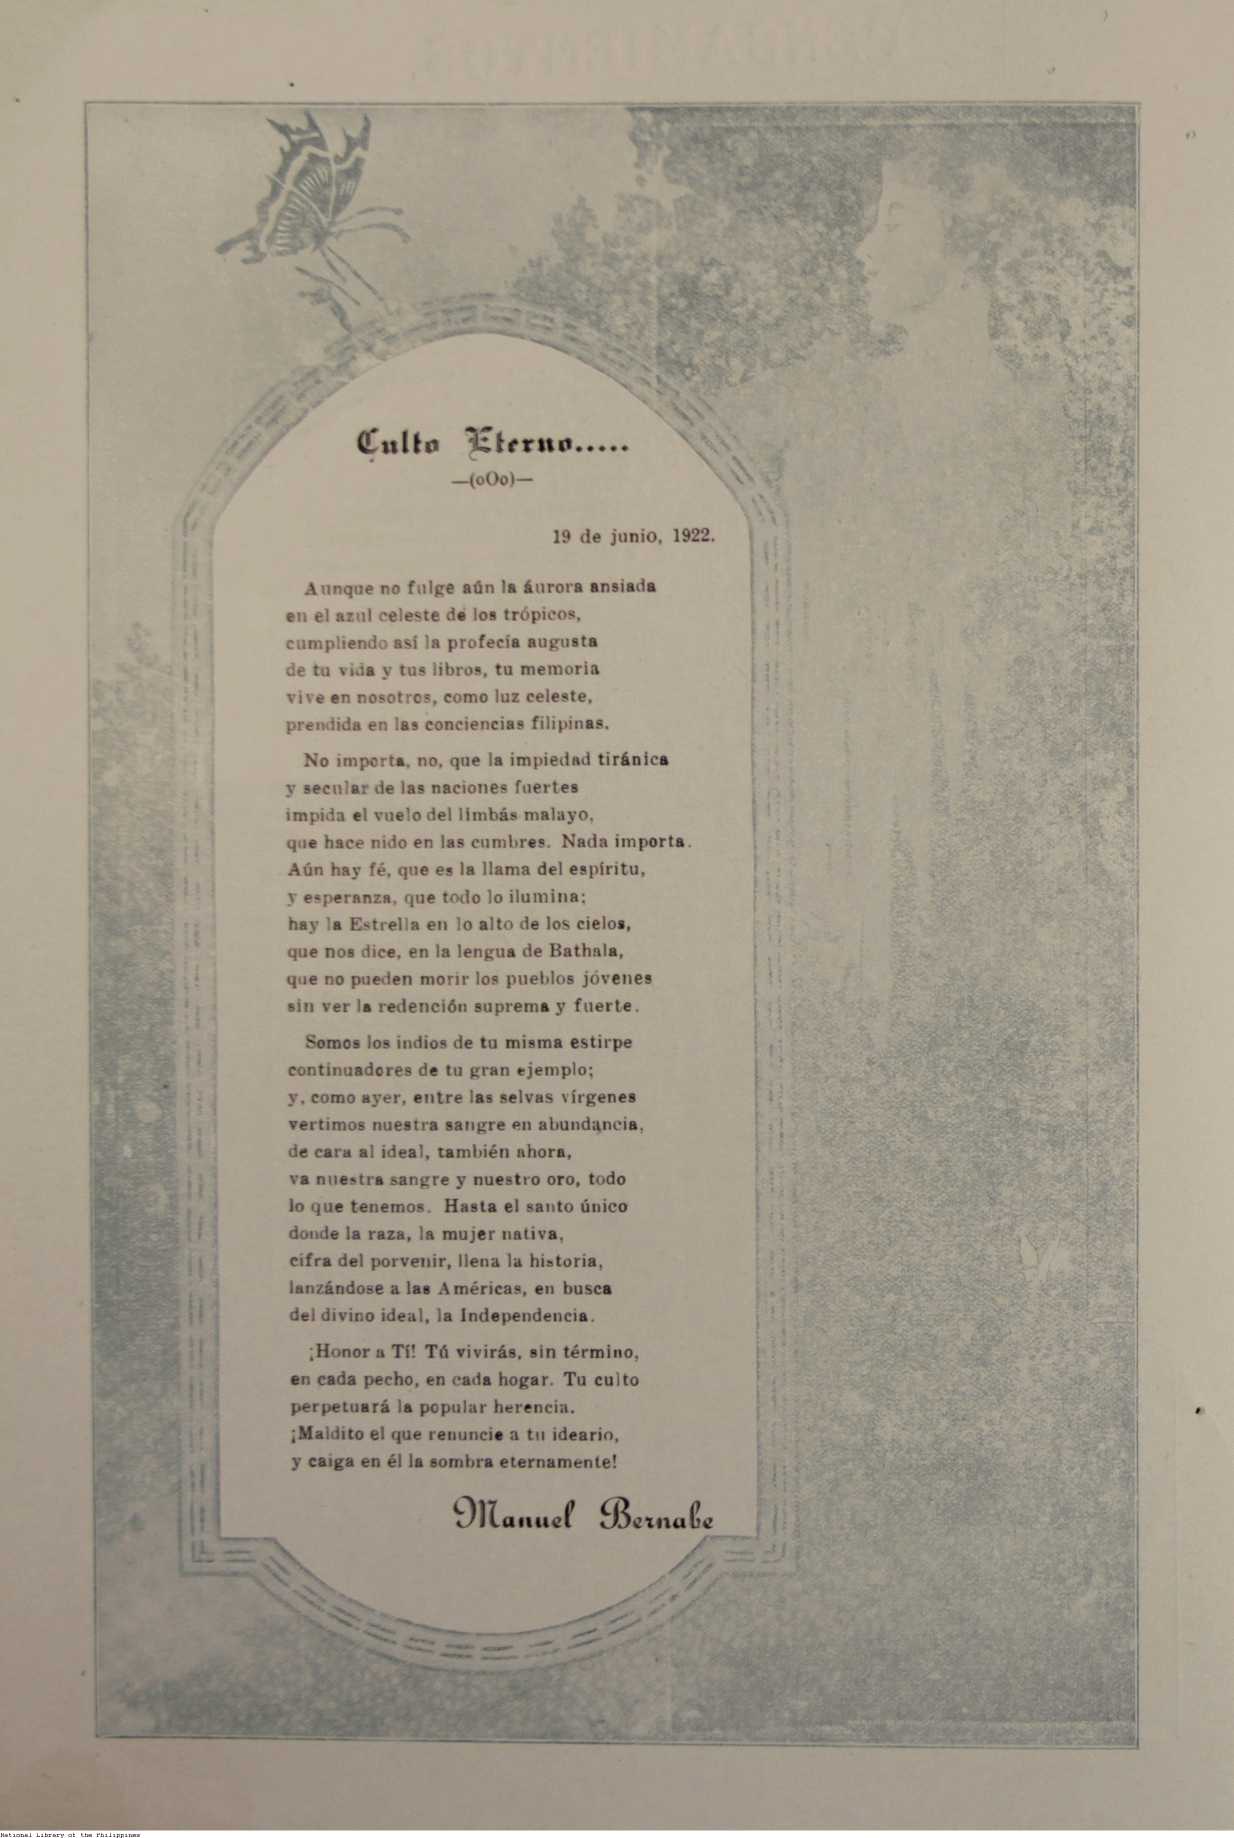 Culto Eterno.....
—(oOo)—
19 de junio, 1922.
Aunque no fulge aún la áurora ansiada
en el azul celeste de los trópicos,
cumpliendo así la profecía augusta
de tu vida y tus libros, tu memoria
vive en nosotros, como luz celeste,
prendida en las conciencias filipinas.
No importa, no, que la impiedad tiránica
y secular de las naciones fuertes
impida el vuelo del limbás malayo,
que hace nido en las cumbres. Nada importa.
Aún hay fé, que es la llama del espíritu,
y esperanza, que todo lo ilumina;
hay la Estrella en lo alto de los cielos,
que nos dice, en la lengua de Bathala,
que no pueden morir los pueblos jóvenes
sin ver la redención suprema y fuerte.
Somos los indios de tu misma estirpe
continuadores de tu gran ejemplo;
y, como ayer, entre las selvas vírgenes
vertimos nuestra sangre en abundancia,
de cara al ideal, también ahora,
va nuestra sangre y nuestro oro, todo
lo que tenemos. Hasta el santo único
donde la raza, la mujer nativa,
cifra del porvenir, llena la historia,
lanzándose a las Américas, en busca
del divino ideal, la Independencia.
¡Honor a Tí! Tú vivirás, sin término,
en cada pecho, en cada hogar. Tu culto
perpetuará la popular herencia.
¡Maldito el que renuncie a tu ideario,
y caiga en él la sombra eternamente!
Manuel Bernabe
National Library of the Philippines